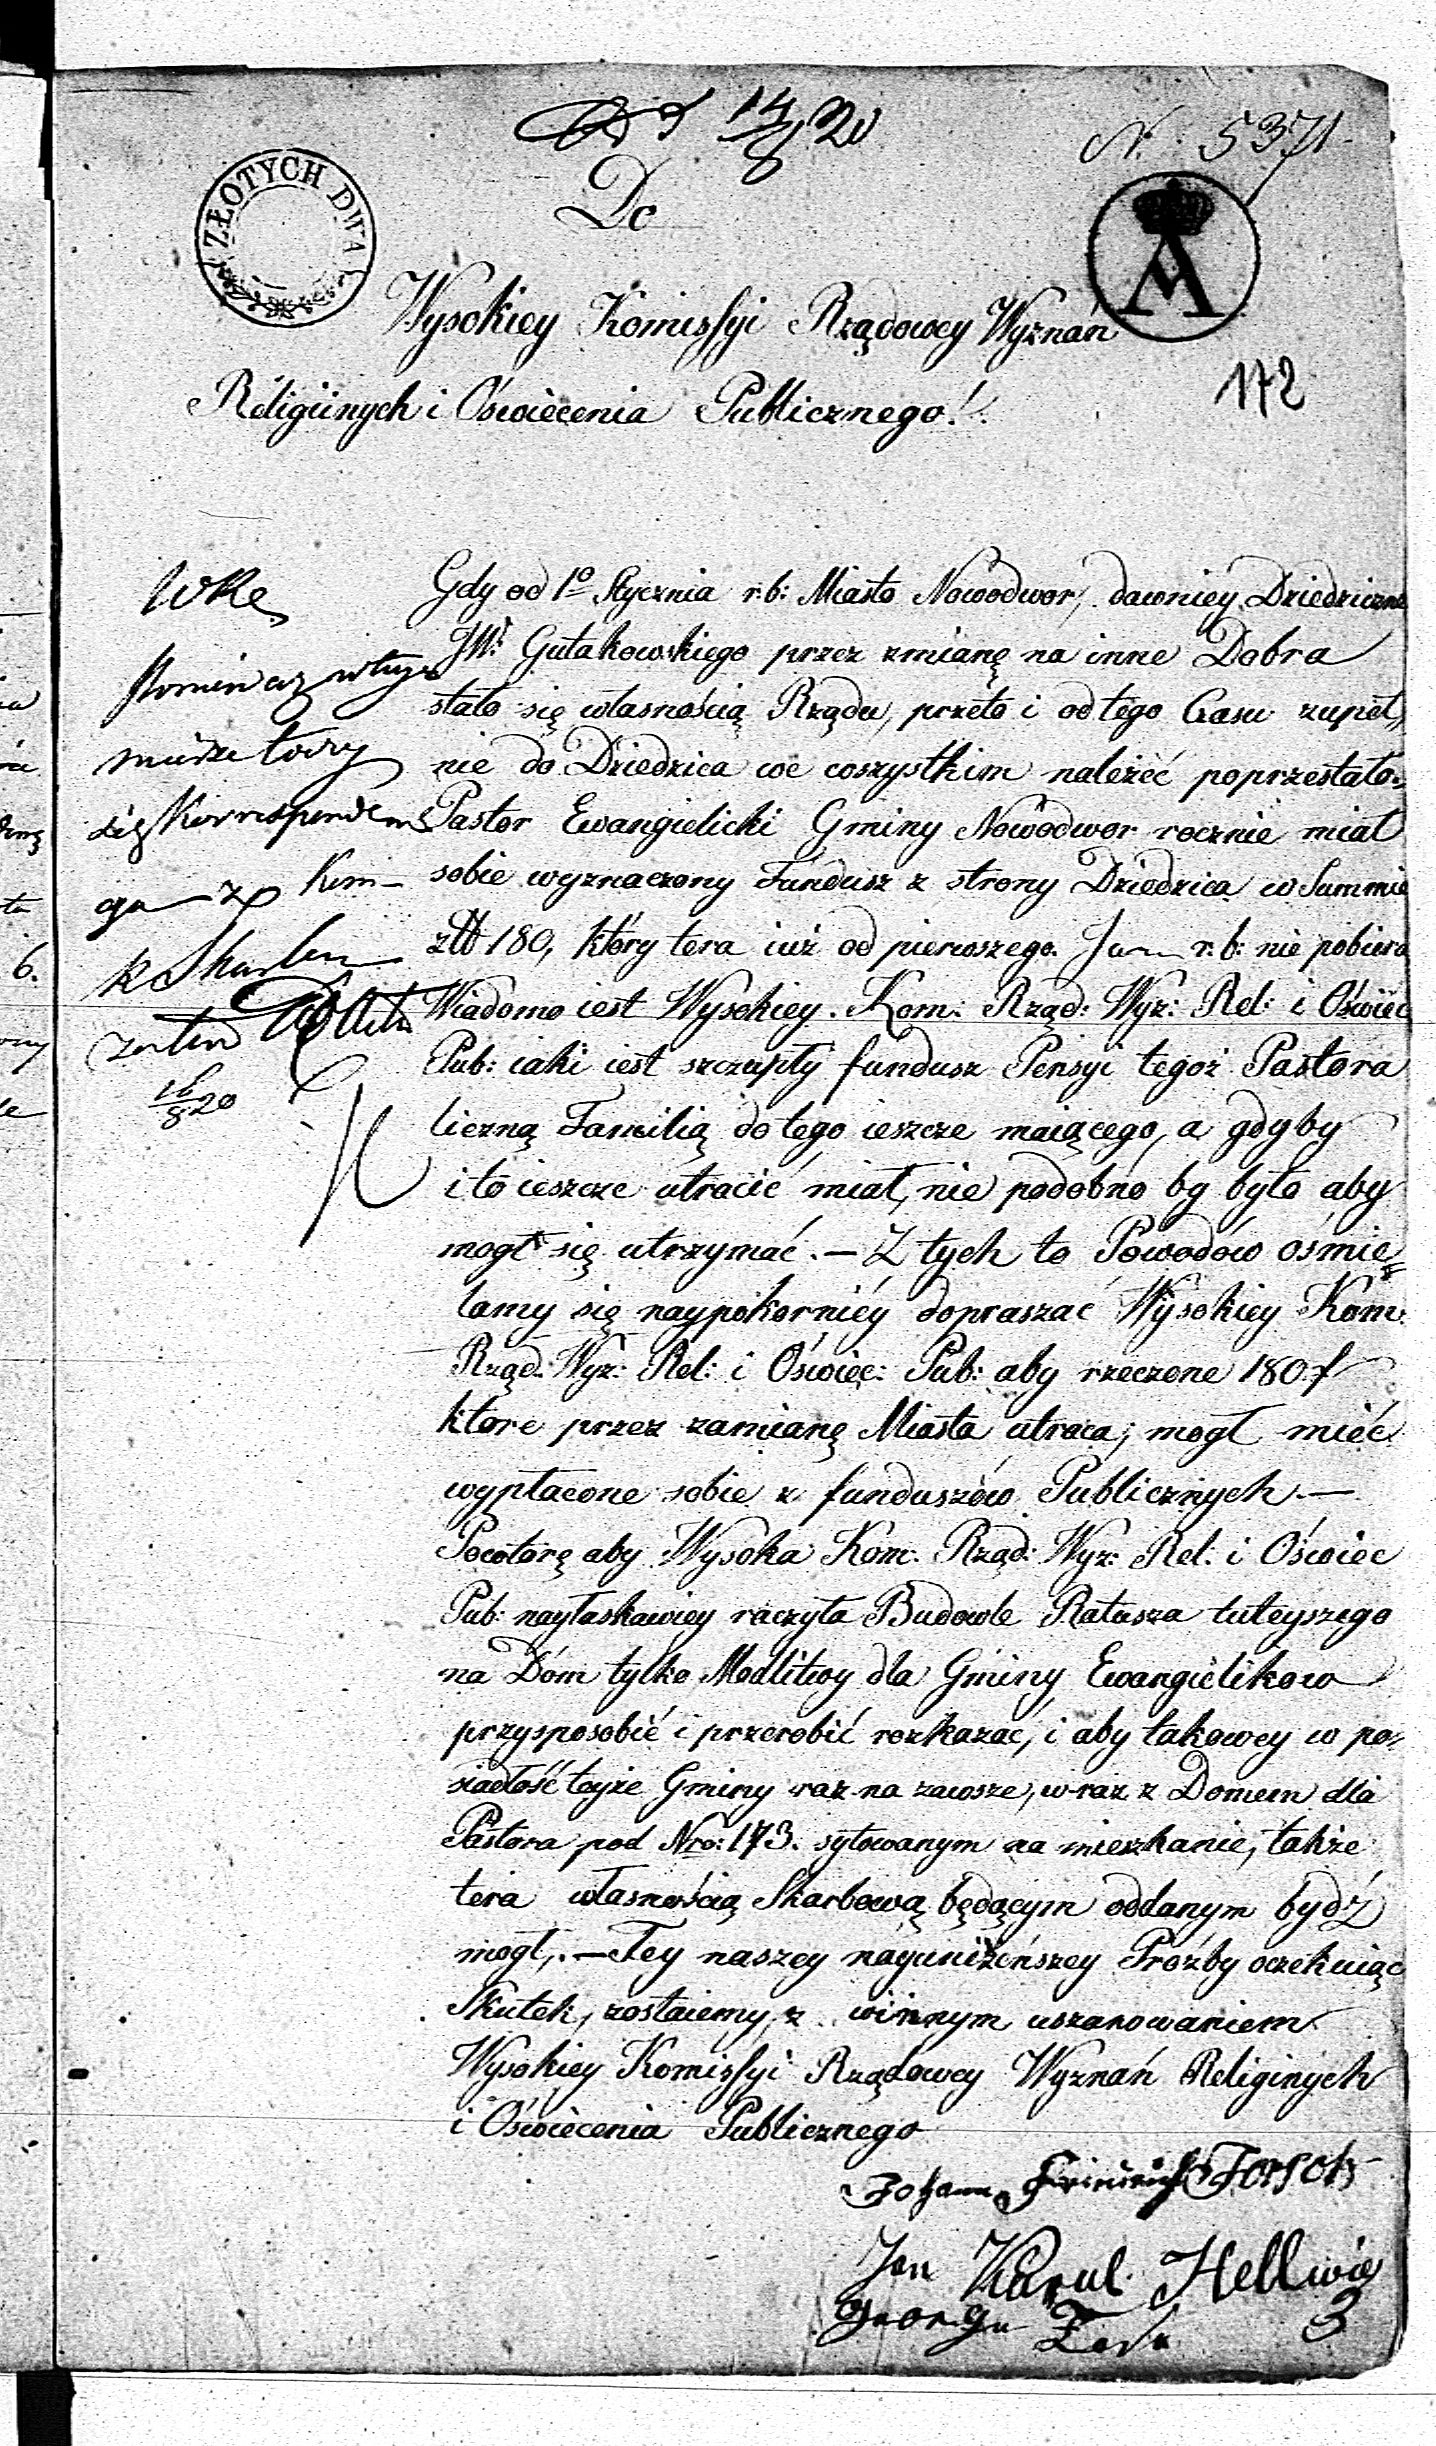 14/8 20
N. 5371
ZŁOTYCH DWA
Do
A
Wysokiey Komissyi Rządowey Wyznań
172
Religiinych i Oświecenia Publicznego!
Gdy od 1º Stycznia r.b: Miasto Nowodwor, dawniey Dziedziczne
JW. Gutakowskiego przez zmianę na inne Dobra
stało się własnością Rządu, przeto i od tego Czasu zupeł„
nie do Dziedzica we wszystkim należéć poprzestało.
Pastor Ewangielicki Gminy Nowodwor rocznie miał
sobie wyznaczony Fundusz z strony Dziedzica w Summie
złł 180, który tera iuż od pierwszego Jan r.b: nie pobiera
Wiadomo iest Wysokiey. Kom: Rząd: Wyz: Rel: i Oświec
Pub: iaki iest szczupły fundusz Pensyi tegoż Pastora
liczną Familią do tego ieszcze maiącego, a gdyby
i to ieszcze utracić miał, nie podobno by było aby
mogł się utrzymać. — Z tych to Powodów ośmie„
lamy się naypokorniéy dopraszać Wysokiey Kom:
Rząd: Wyz: Rel: i Oświec: Pub: aby rzeczone 180 f
ktore przez zamianę Miasta utraca, mogł mieć
wypłacone sobie z funduszów Publicznych. —
Powtorę aby Wysoka Kom: Rząd: Wyz: Rel. i Oświec
Pub: nayłaskawiey raczyła Budowle Ratusza tuteyszego
na Dóm tylko Modlitwy dla Gminy Ewangielikow
przysposobić i przerobić rozkazać, i aby takowey w po„
siadłość teyże Gminy raz na zawsze, wraz z Domem dla
Pastora pod Nro: 173. sytowanym na mieszkanie, także
tera własnością Skarbową będącym oddanym bydź
mogł,. — Tey naszey nayuniżeńszey Proźby oczekuiąc
Skutek, zostaiemy, z winnym uszanowaniem
Wysokiey Komissyi Rządowey Wyznań Religinych
i Oświecenia Publicznego
Johann Forsch
Jan Karul Hellwig
3
WRe
Korrespenden
cya z Kom
R Skarbu
16/8 20